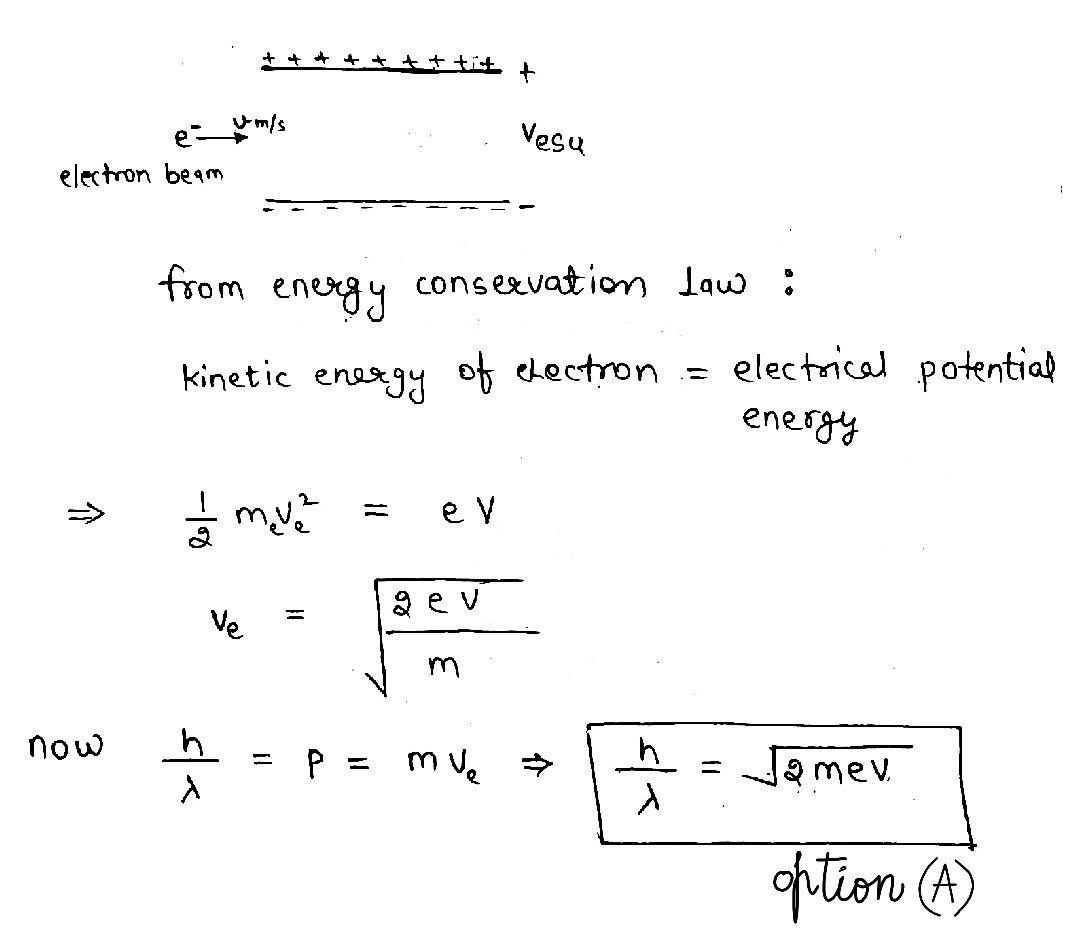 + + + + + + + + + + +
e⁻ → v m/s
Vesu
electron beam
- - - - - - - - - -
from energy conservation law :
kinetic energy of electron = electrical potential
energy
⇒ 1/2 mₑvₑ² = eV
vₑ = √(2eV/m)
now h/λ = P = m vₑ ⇒ h/λ = √2meV
option (A)